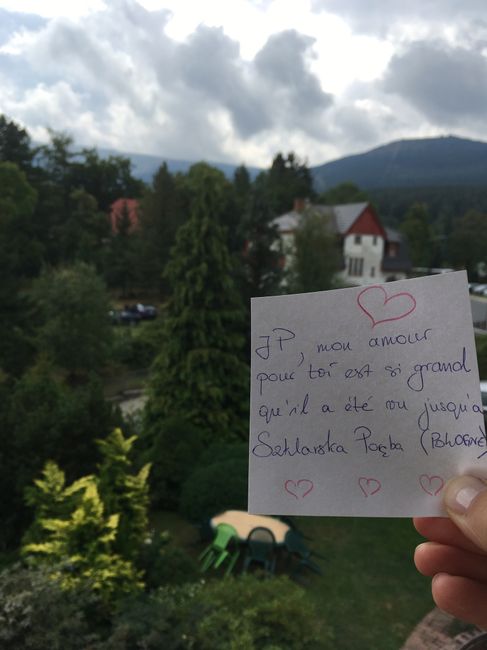 JP, mon amour
pour toi est si grand
qu'il a été vu jusqu'à
Szklarska Poręba (POLOGNE)